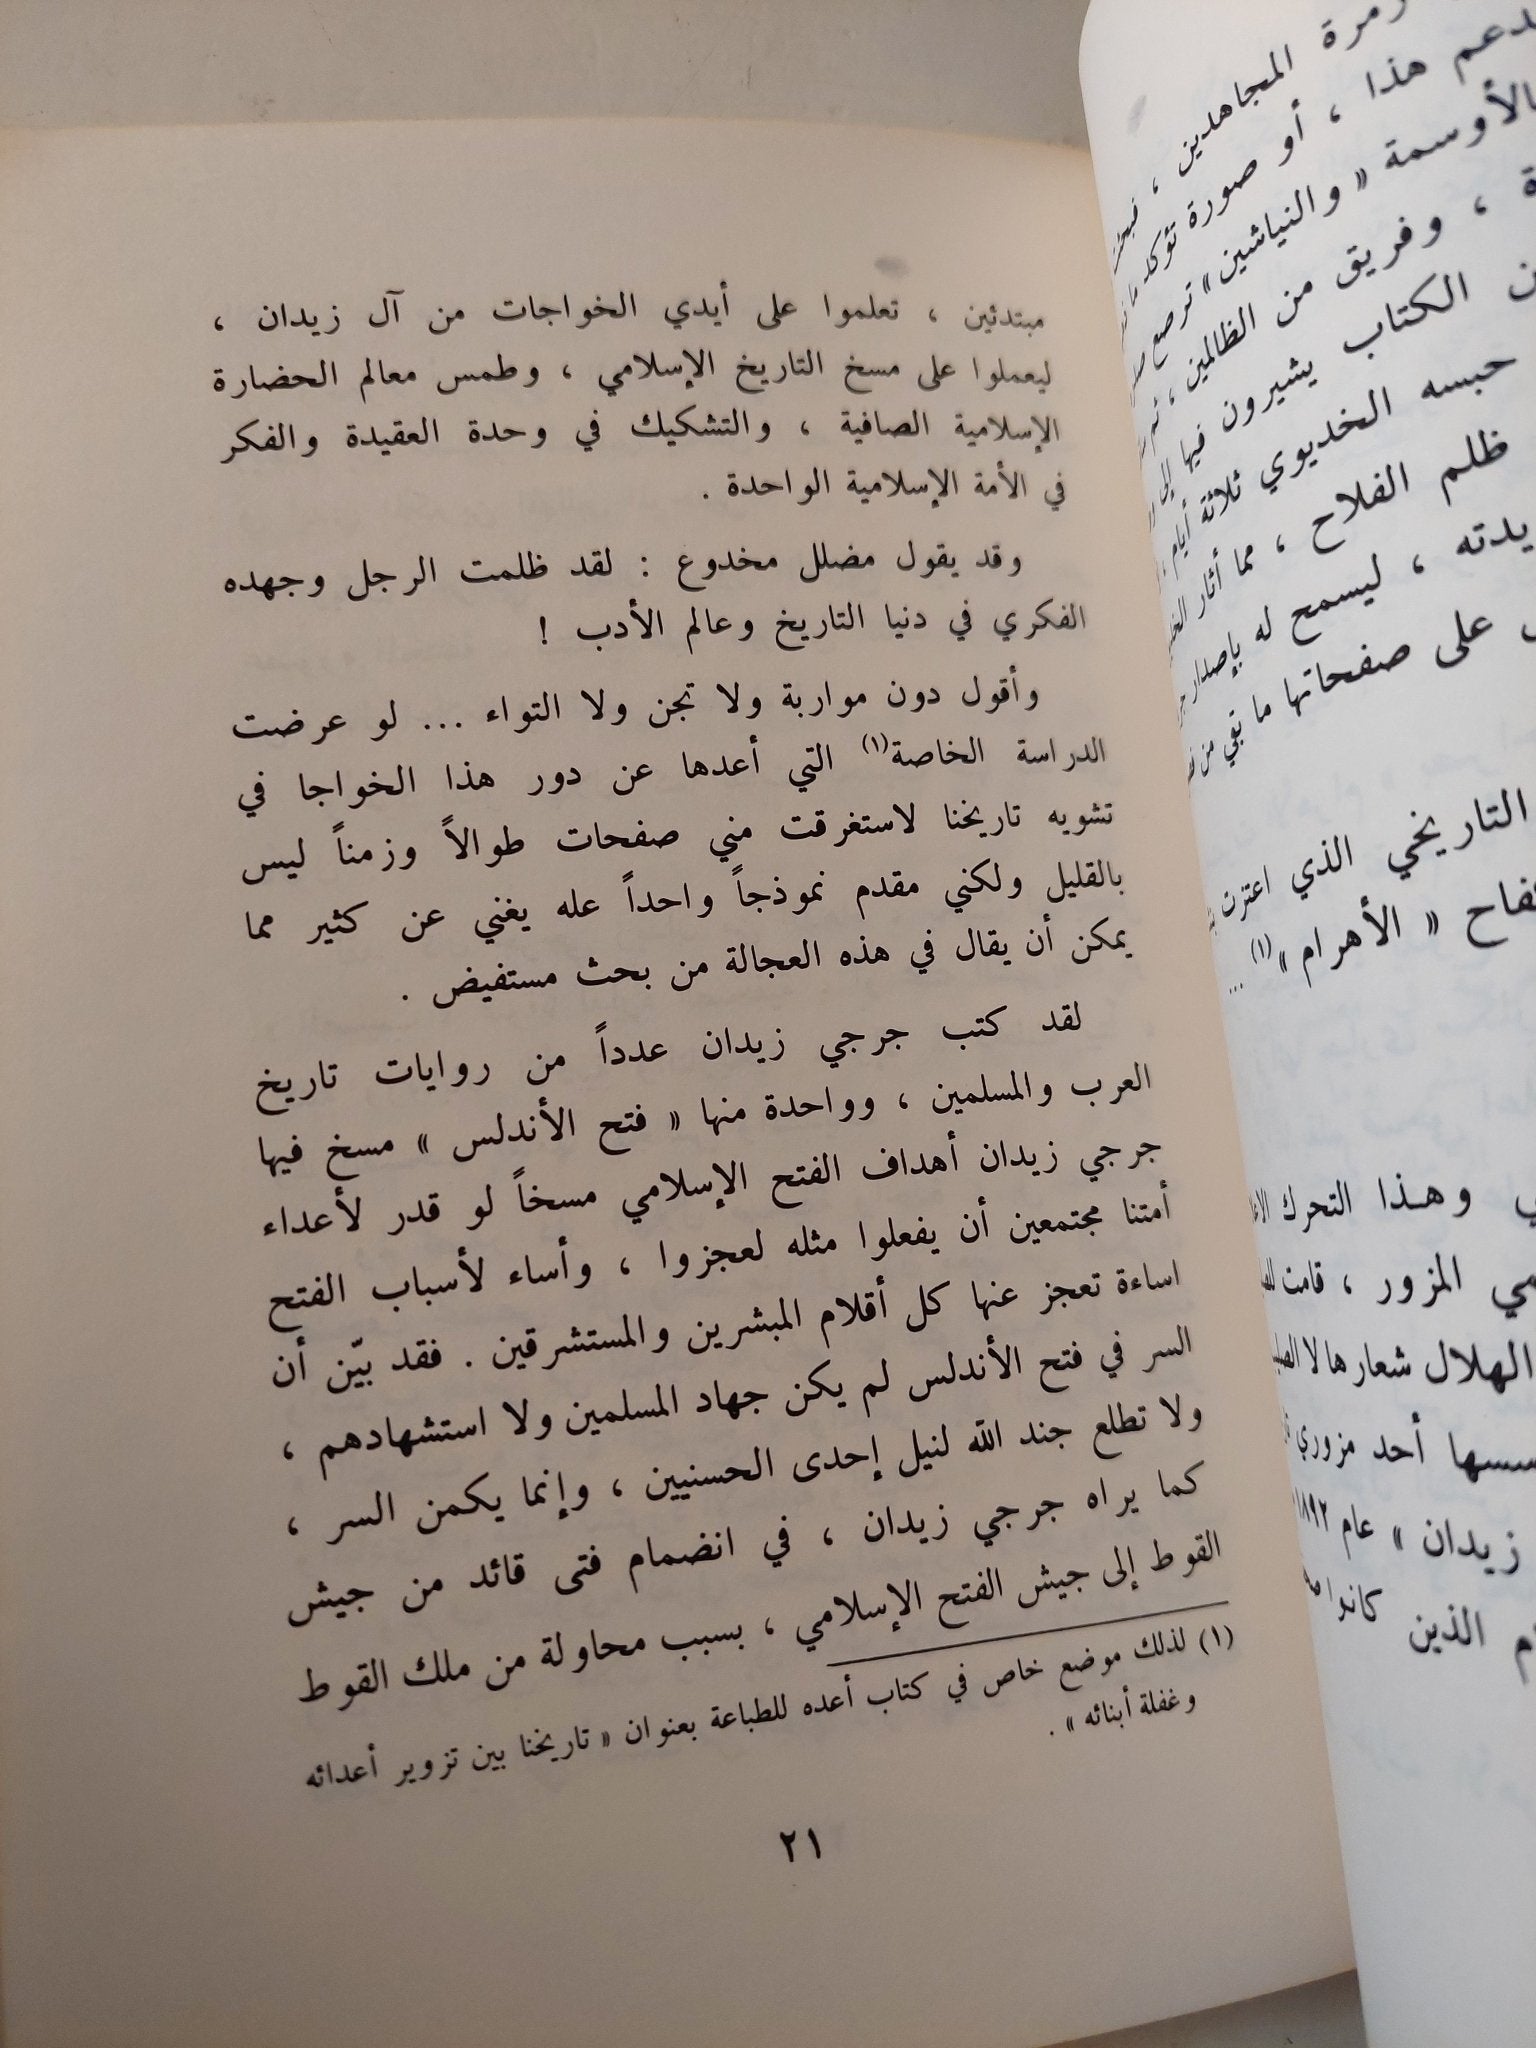 مبتدئين ، تعلموا على أيدي الخواجات من آل زيدان ،
ليعملوا على مسخ التاريخ الإسلامي ، وطمس معالم الحضارة
الإسلامية الصافية ، والتشكيك في وحدة العقيدة والفكر
في الأمة الإسلامية الواحدة .
وقد يقول مضلل مخدوع : لقد ظلمت الرجل وجهده
الفكري في دنيا التاريخ وعالم الأدب !
وأقول دون مواربة ولا تجن ولا التواء ... لو عرضت
الدراسة الخاصة(١) التي أعدها عن دور هذا الخواجا في
تشويه تاريخنا لاستغرقت مني صفحات طوالاً وزمناً ليس
بالقليل ولكني مقدم نموذجاً واحداً عله يغني عن كثير مما
يمكن أن يقال في هذه العجالة من بحث مستفيض .
لقد كتب جرجي زيدان عدداً من روايات تاريخ
العرب والمسلمين ، وواحدة منها « فتح الأندلس » مسخ فيها
جرجي زيدان أهداف الفتح الإسلامي مسخاً لو قدر لأعداء
أمتنا مجتمعين أن يفعلوا مثله لعجزوا ، وأساء لأسباب الفتح
اساءة تعجز عنها كل أقلام المبشرين والمستشرقين . فقد بيّن أن
السر في فتح الأندلس لم يكن جهاد المسلمين ولا استشهادهم ،
ولا تطلع جند الله لنيل إحدى الحسنيين ، وإنما يكمن السر ،
كما يراه جرجي زيدان ، في انضمام فتى قائد من جيش
القوط إلى جيش الفتح الإسلامي ، بسبب محاولة من ملك القوط
(١) لذلك موضع خاص في كتاب أعده للطباعة بعنوان « تاريخنا بين تزوير أعدائه
وغفلة أبنائه » .
٢١
زمرة المجاهدين ،
هذا ، أو صورة تؤكد
« والنياشين » ترصع
، وفريق من الظالمين ، ثم
الكتاب يشيرون فيها إلى
حبسه الخديوي ثلاثة أيام
ظلم الفلاح ، مما أثار
، ليسمح له بإصدار
على صفحاتها ما بقي من
التاريخي الذي اعترت
« الأهرام »(١) ....
وهذا التحرك
المزور ، قامت
الهلال شعارها لا
أحد مزوري
زيدان » عام ١٨٩٢
الذين كانوا